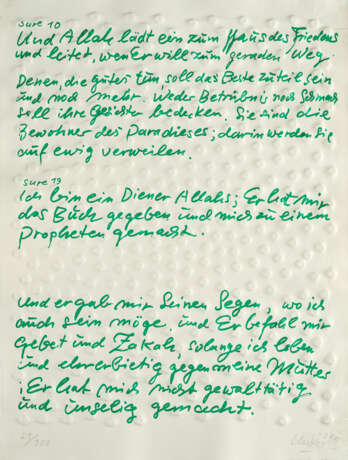 Sure 10
Und Allah lädt ein zum Haus des Friedens
und leitet, wen Er will zum geraden Weg
Denen, die gutes tun soll das Beste zuteil sein
und noch mehr. Weder Betrübnis noch Schmach
soll ihre Gesichter bedecken. Sie sind die
Bewohner des Paradieses; darin werden sie
auf ewig verweilen.
Sure 19
Ich bin ein Diener Allahs; Er hat mir
das Buch gegeben und mich zu einem
Propheten gemacht.
Und er gab mir Seinen Segen, wo ich
auch sein möge, und Er befahl mir
Gebet und Zakah, solange ich leben
und ehrerbietig gegenüber meine Mutter
; Er hat mich nicht gewalttätig
und unselig gemacht.